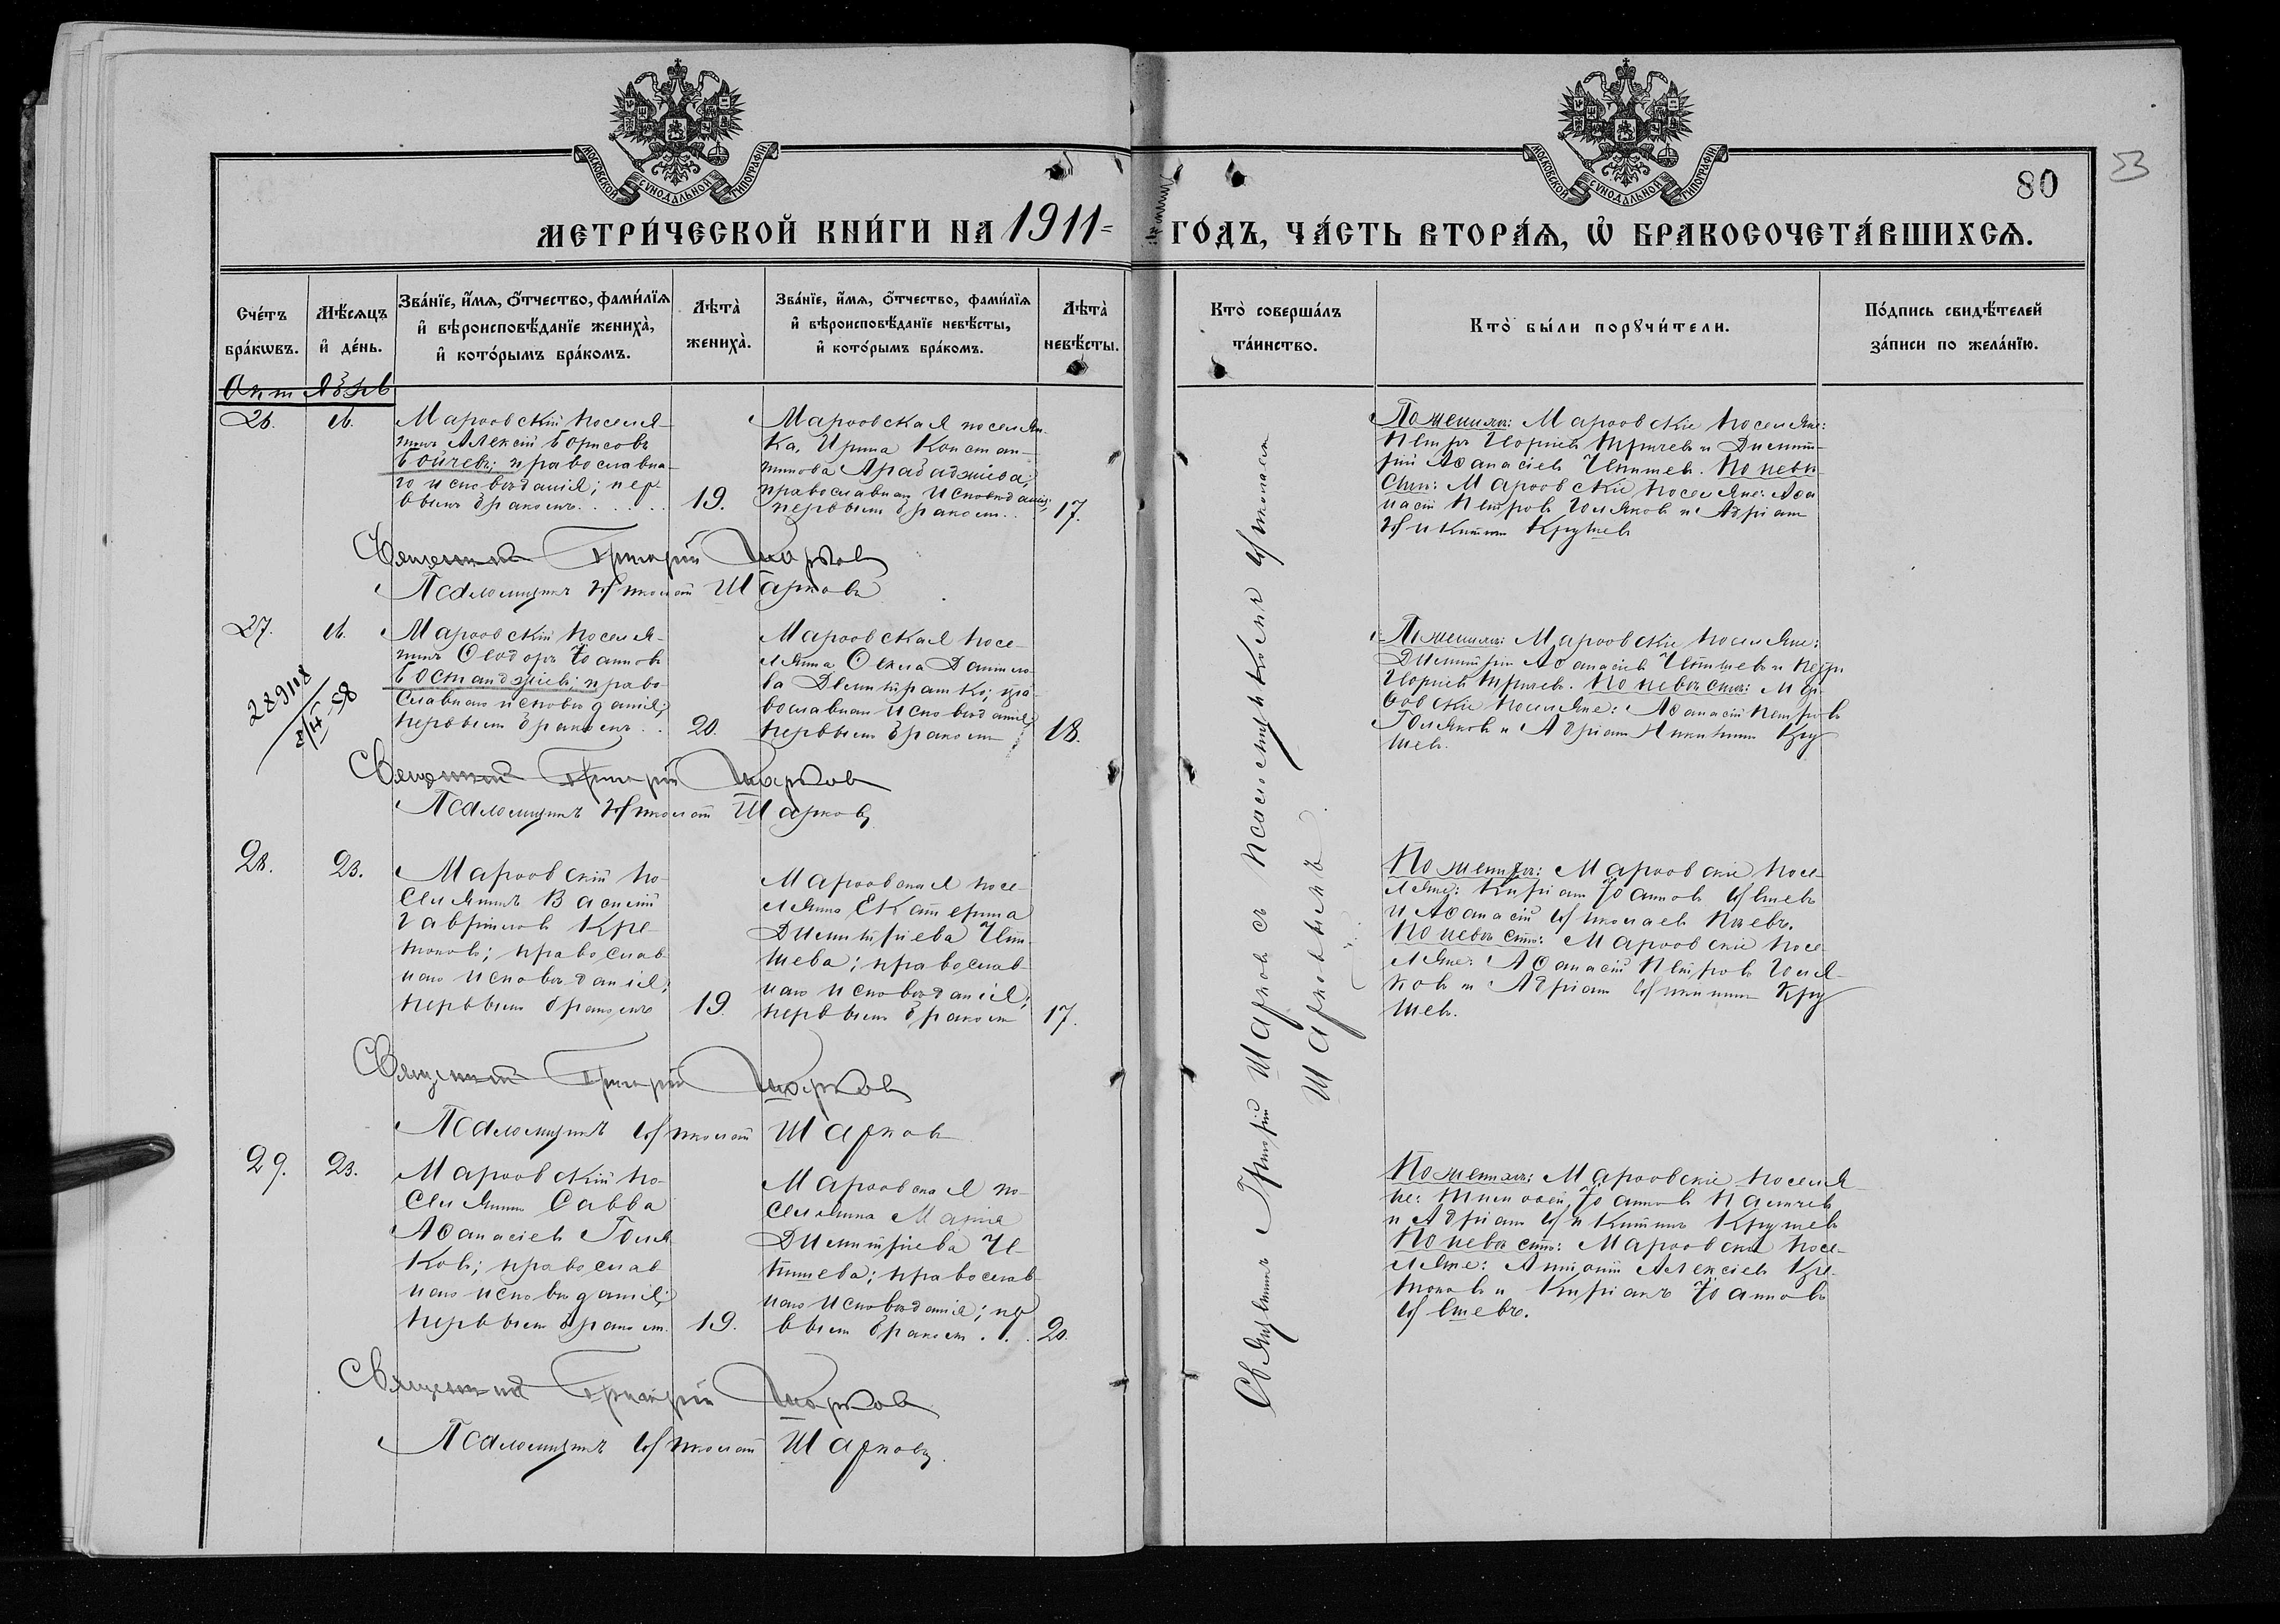 МОСКОВСКОЙ СѴНОДАЛЬНОЙ ТИПОГРАФІИ
МОСКОВСКОЙ СѴНОДАЛЬНОЙ ТИПОГРАФІИ
80
МЕТРИ́ЧЕСКОЙ КНИ́ГИ НА 1911 ГО́ДЪ, ЧА́СТЬ ВТОРА́Ѧ, Ѡ БРАКОСОЧЕТА́ВШИХСѦ.
Сче́тъ бра́кѡвъ.
Мѣ́сѧцъ и҆ де́нь.
Зва́нїе, и҆́мѧ, ѻ҆́тчество, фами́лїѧ
и҆ вѣроисповѣ́данїе жениха̀,
и҆ кото́рымъ бра́комъ.
Лѣта̀ жениха̀.
Зва́нїе, и҆́мѧ, ѻ҆́тчество, фами́лїѧ
и҆ вѣроисповѣ́данїе невѣ́сты,
и҆ кото́рымъ бра́комъ.
Лѣта̀ невѣ́сты.
Кто̀ соверша́лъ
та́инство.
Кто̀ бы́ли порꙋчи́тели.
По́дпись свидѣ́телей
за́писи по жела́нїю.
26.
Марѳовскій поселя-
нинъ Алексій Борисовъ
Бойчевъ; православна-
го исповѣданія; пер-
вымъ бракомъ
19.
Марѳовская поселян-
ка, Ирина Констан-
тинова Арабаджиева;
православнаго исповѣданія;
первымъ бракомъ
17.
По женихѣ: Марѳовскіе поселяне:
Петръ Георгіевъ и Димит-
рій Аѳанасіевъ По невѣ-
стѣ: Марѳовскіе поселяне: Аѳа-
насій Петровъ Голяковъ и Адріанъ
Никитинъ Крушевъ
Священникъ Григорій Шарковъ
Псаломщикъ Николай Шарковъ
27.
Марѳовскій поселя-
нинъ Ѳеодоръ Іоанновъ
Бостанджіевъ; право-
славнаго исповѣданія;
первымъ бракомъ
20.
Марѳовская посе-
лянка Ѳекла Данило-
ва Димитрашко; пра-
вославнаго исповѣданія
первымъ бракомъ
18.
289118
98
По женихѣ: Марѳовскіе поселяне:
Димитрій Аѳанасіевъ и Петръ
Георгіевъ По невѣстѣ: Мар-
ѳовскіе поселяне: Аѳанасій Петровъ
Голяковъ и Адріанъ Никитинъ Кру-
шевъ.
Священникъ Григорій Шарковъ
Псаломщикъ Николай Шарковъ
28.
23.
Марѳовскій по-
селянинъ Василій
Гавріиловъ Кре-
тоновъ; православ-
наго исповѣданія;
первымъ бракомъ
19.
Марѳовская посе-
лянка Екатерина
Димитріева
шева; православ-
наго исповѣданія;
первымъ бракомъ
17.
По женихѣ: Марѳовскіе посе-
ляне: Кипріанъ Іоанновъ
и Аѳанасій Николаевъ
По невѣстѣ: Марѳовскіе посе-
ляне: Аѳанасій Петровъ Голя-
ковъ и Адріанъ Никитинъ Кру-
шевъ.
Священникъ Григорій Шарковъ
Псаломщикъ Николай Шарковъ
29.
23.
Марѳовскій по-
селянинъ Савва
Аѳанасіевъ Голя-
ковъ; православ-
наго исповѣданія;
первымъ бракомъ
19.
Марѳовская по-
селянка Марія
Димитріева
православ-
наго исповѣданія; пер-
вымъ бракомъ
20.
По женихѣ: Марѳовскіе поселя-
не: Тимоѳей Іоанновъ
и Адріанъ Никитинъ Крушевъ
По невѣстѣ: Марѳовскіе посе-
ляне: Антоній Алексіевъ Кре-
тоновъ и Кипріанъ Іоанновъ
Священникъ Григорій Шарковъ
Псаломщикъ Николай Шарковъ
Священникъ Григорій Шарковъ съ псаломщикомъ Николаемъ
Шарковымъ.